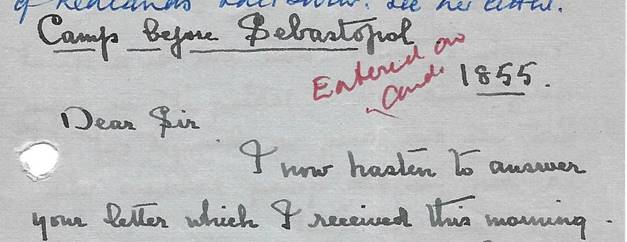 of Redlands
See her letter.
Camp before Sebastopol
Entered on
Card.
1855.
Dear Sir
I now hasten to answer
your letter which I received this morning.